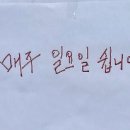 매주 일요일 쉽니다